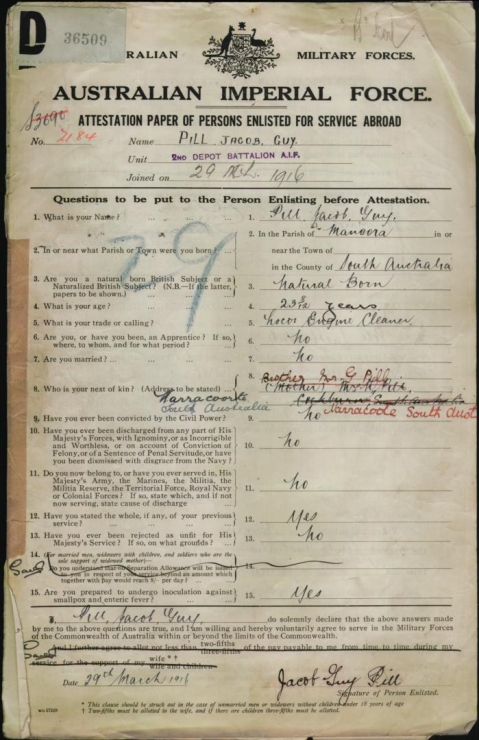 D
36509
AUSTRALIAN MILITARY FORCES.
AUSTRALIAN IMPERIAL FORCE.
ATTESTATION PAPER OF PERSONS ENLISTED FOR SERVICE ABROAD
No. 2184 Name PILL JACOB, GUY.
Unit 2ND DEPOT BATTALION A.I.F.
Joined on 29 Mch. 1916
Questions to be put to the Person Enlisting before Attestation.
1. What is your Name? 1. Pill, Jacob, Guy.
2. In or near what Parish or Town were you born? 2. In the Parish of Manoora in or
near the Town of
in the County of South Australia
29
3. Are you a natural born British Subject or a
Naturalized British Subject? (N.B.—If the latter,
papers to be shown.) 3. Natural Born
4. What is your age? 4. years
5. What is your trade or calling? 5. Locos Engine Cleaner
6. Are you, or have you been, an Apprentice? If so,
where, to whom, and for what period? 6. no
7. Are you married? 7. no
8. Who is your next of kin? (Address to be stated) 8. Brother Mr. G Pill
(Mother) Mrs. Pill
Cockburn South Australia
Narracoorte
South Australia
Narracoote South Aust
9. Have you ever been convicted by the Civil Power? 9. no
10. Have you ever been discharged from any part of His
Majesty's Forces, with Ignominy, or as Incorrigible
and Worthless, or on account of Conviction of
Felony, or of a Sentence of Penal Servitude, or have
you been dismissed with disgrace from the Navy? 10. no
11. Do you now belong to, or have you ever served in, His
Majesty's Army, the Marines, the Militia, the
Militia Reserve, the Territorial Force, Royal Navy
or Colonial Forces? If so, state which, and if not
now serving, state cause of discharge 11. no
12. Have you stated the whole, if any, of your previous
service? 12. Yes
13. Have you ever been rejected as unfit for His
Majesty's Service? If so, on what grounds? 13. no
14. (For married men, widowers with children, and soldiers who are the
sole support of widowed mother)—
Do you understand that no Separation Allowance will be issued
to you in respect of your service beyond an amount which
together with pay would reach 8/- per day? 14.
15. Are you prepared to undergo inoculation against
smallpox and enteric fever? 15. Yes
I, Pill, Jacob Guy do solemnly declare that the above answers made
by me to the above questions are true, and I am willing and hereby voluntarily agree to serve in the Military Forces
of the Commonwealth of Australia within or beyond the limits of the Commonwealth.
And I further agree to allot not less than two-fifths three-fifths of the pay payable to me from time to time during my
service for the support of my wife * †
wife and children
Date 29th March 1916
Jacob Guy Pill
Signature of Person Enlisted.
* This clause should be struck out in the case of unmarried men or widowers without children under 18 years of age
† Two-fifths must be allotted to the wife, and if there are children three-fifths must be allotted.